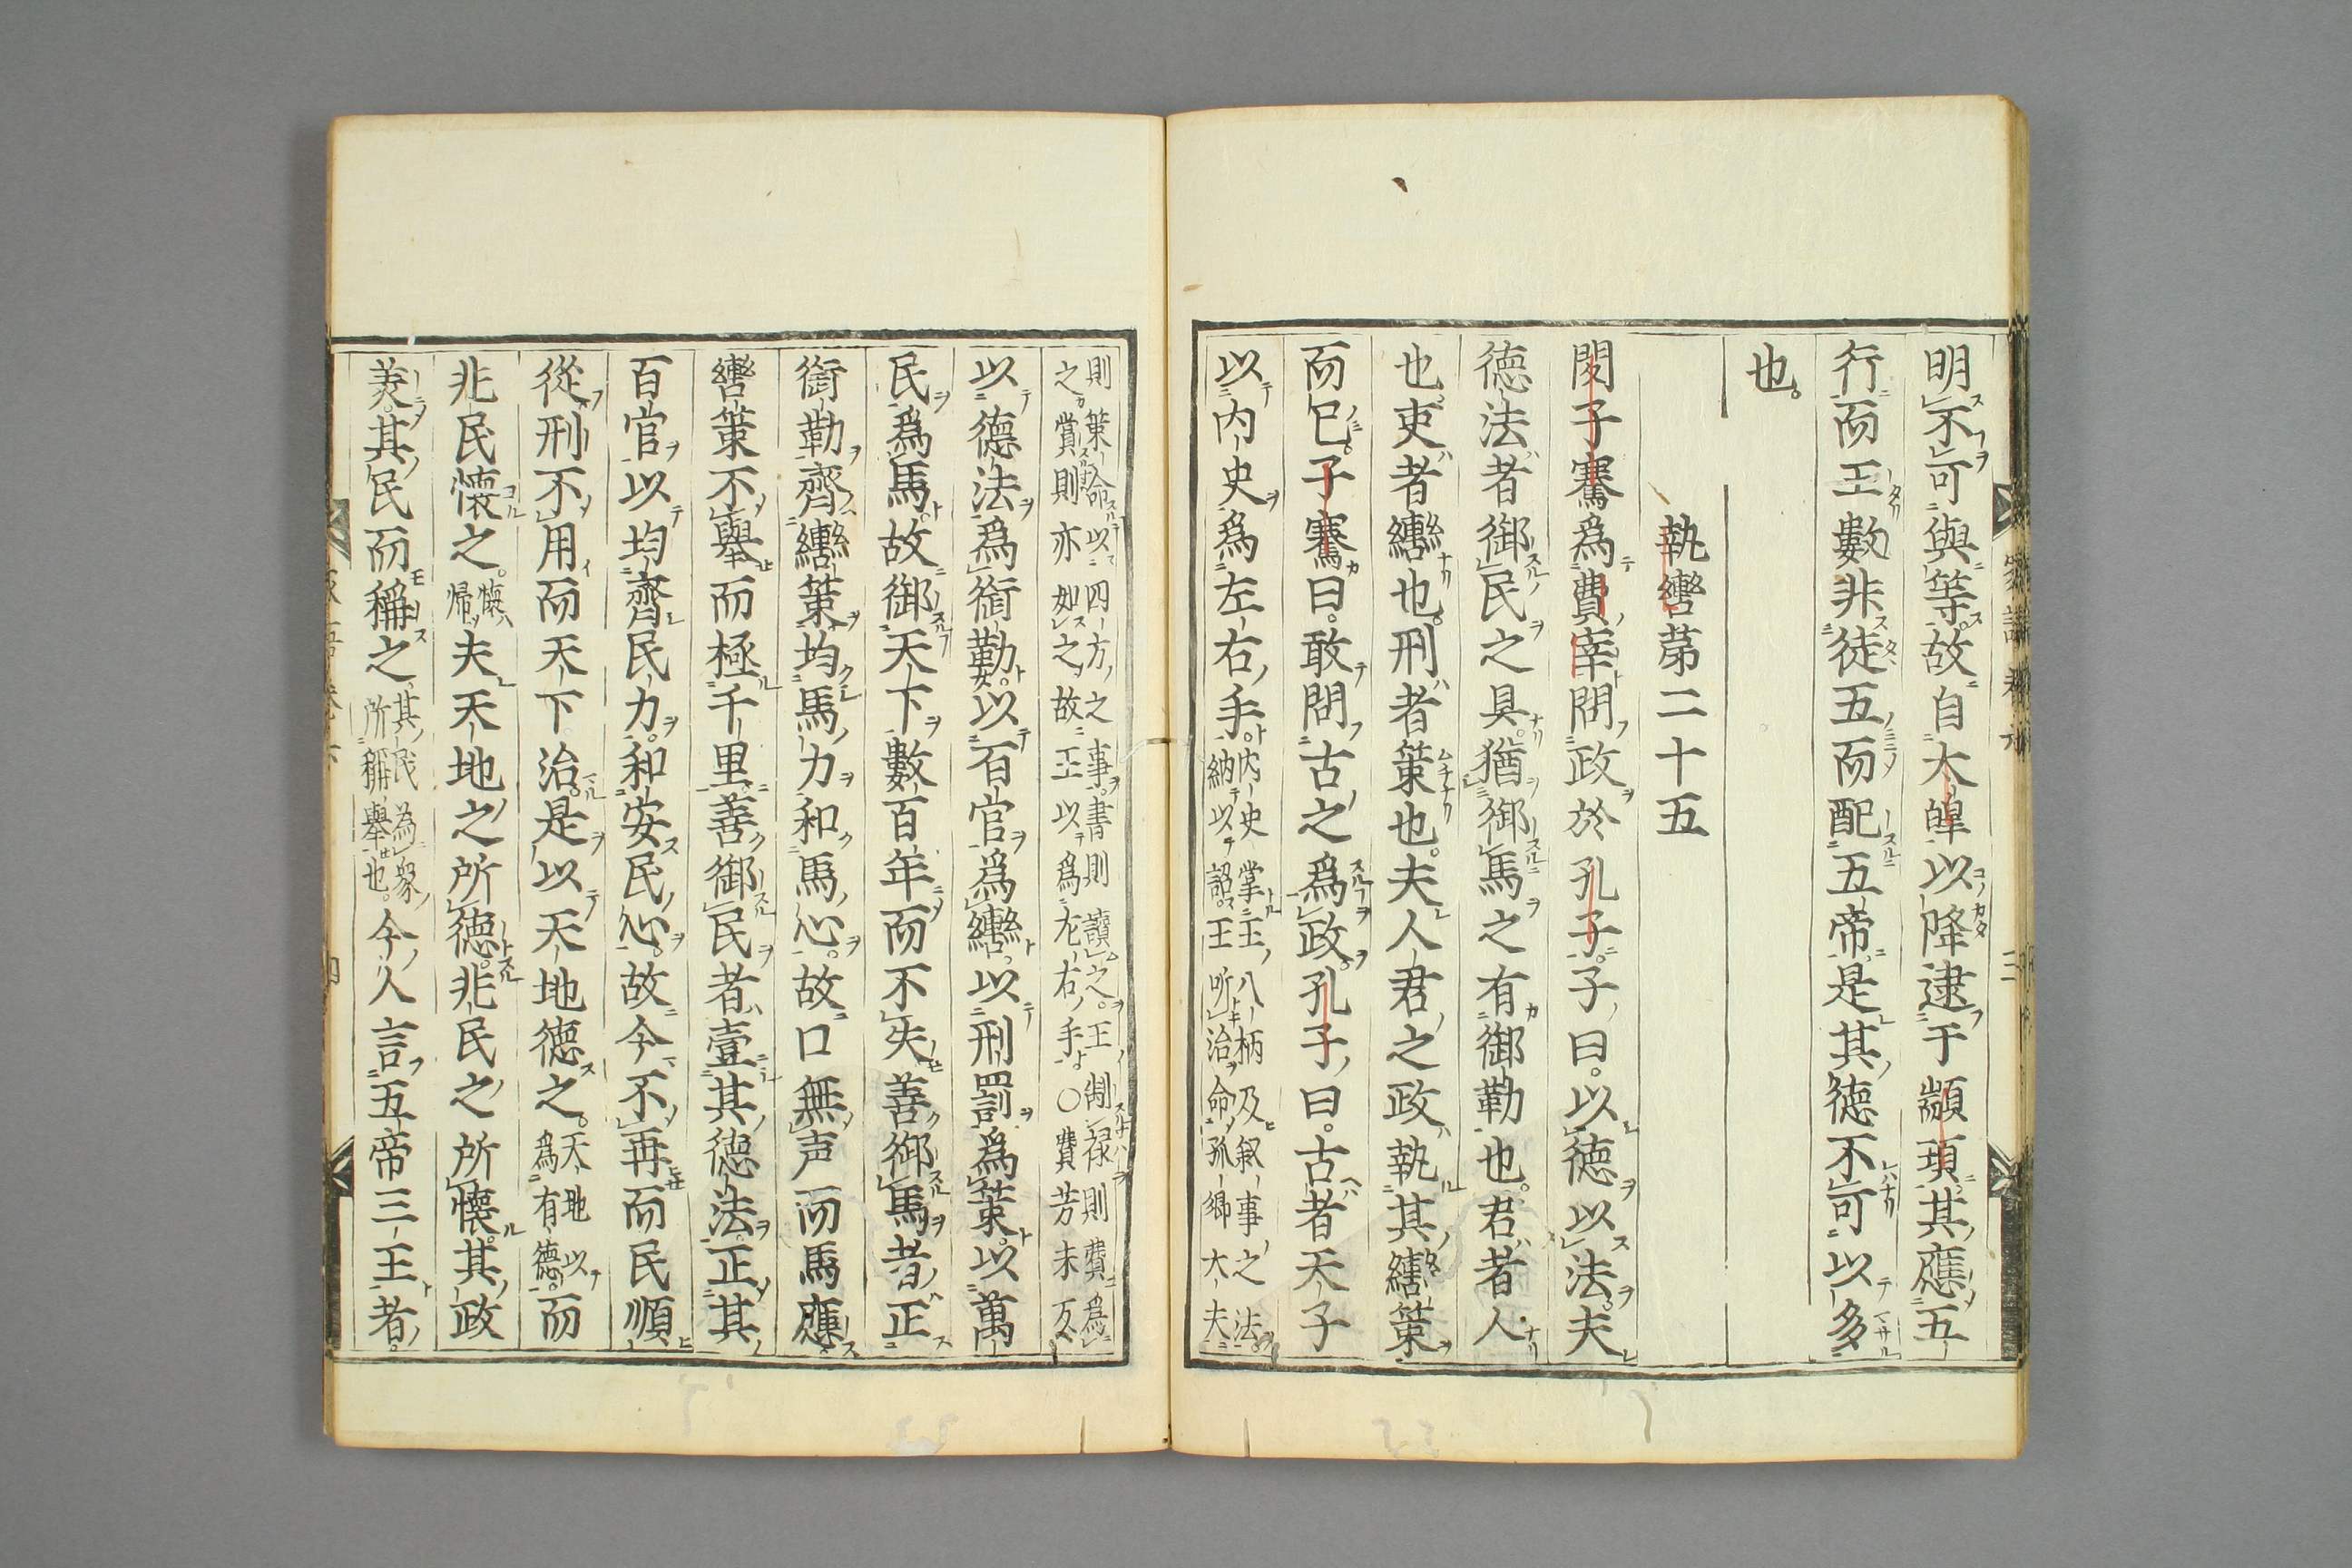 明不可與等故自大皥以降逮于顓頊其應五
行而王數非徒五而配五帝是其德不可以多
也。
執轡苐二十五
閔子騫爲費宰問政於孔子。子曰。以德以法。夫
德法者御民之具。猶御馬之有御勒也。君者人
也吏者轡也。刑者䇿也。夫人君之政執其轡䇿
而已。子騫曰。敢問古之爲政。孔子曰。古者天子
以内史爲左右手。内史掌王八柄及叙事之法。
納以詔王听治命孤卿大夫
則䇿命以四方之事。書則讀之。王制禄則費爲
之賞則亦如之故王以爲左右手〇費芳未反
以德法爲銜勒。以百官爲轡。以刑罰爲䇿。以萬
民爲馬。故御天下數百年而不失善御馬者正
銜勒齊轡䇿均馬力和馬心。故口無声而馬應
轡䇿不舉而極千里。善御民者壹其德法。正其
百官以均齊民力。和安民心。故令不再而民順
從刑不用而天下治。是以天地德之。天地以
爲有德。而
非民懷之。懷
帰夫天地之所德。非民之所懷。其政
美。其民而稱之其民為衆
所稱舉也。今人言五帝三王者。
三